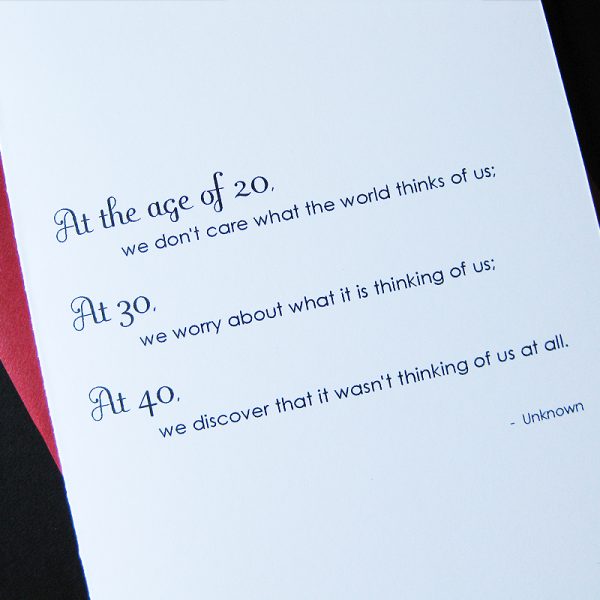 At the age of 20,
we don't care what the world thinks of us;
At 30,
we worry about what it is thinking of us;
At 40,
we discover that it wasn't thinking of us at all.
- Unknown